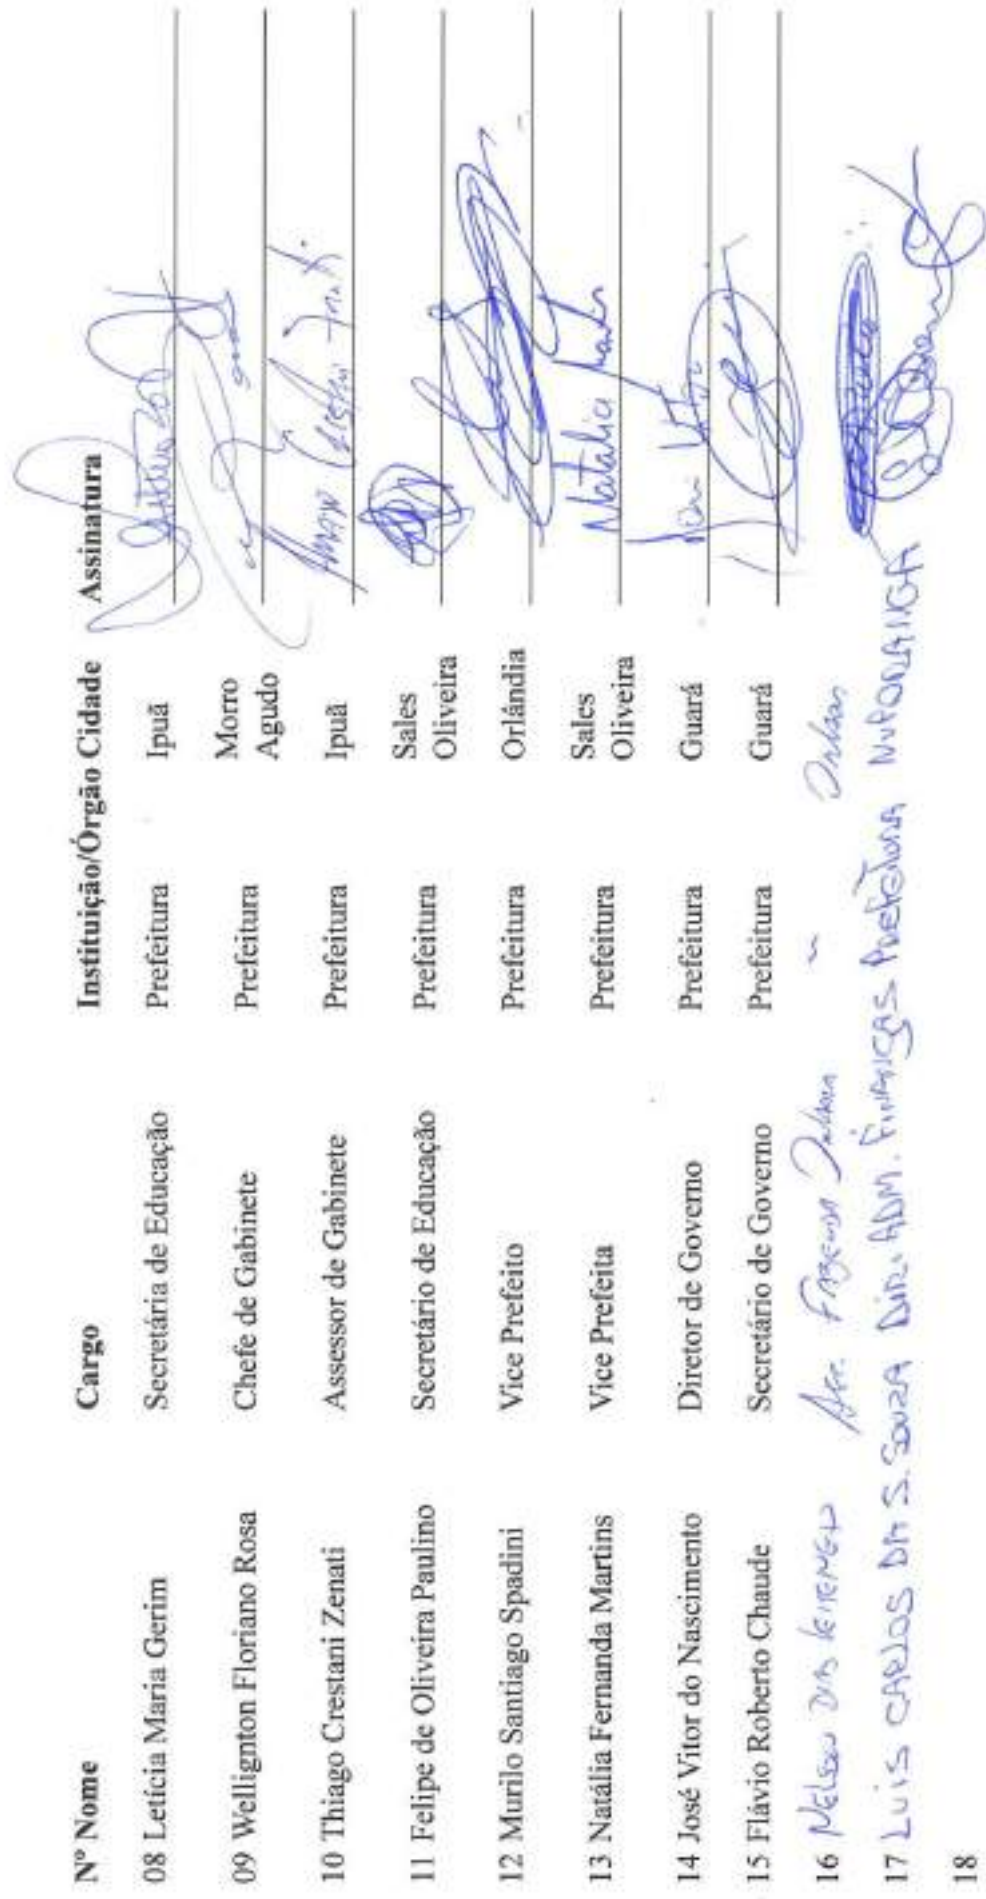 Nº Nome Cargo Instituição/Órgão Cidade Assinatura
08 Letícia Maria Gerim Secretária de Educação Prefeitura Ipuã
09 Wellignton Floriano Rosa Chefe de Gabinete Prefeitura Morro Agudo
10 Thiago Crestani Zenati Assessor de Gabinete Prefeitura Ipuã
11 Felipe de Oliveira Paulino Secretário de Educação Prefeitura Sales Oliveira
12 Murilo Santiago Spadini Vice Prefeito Prefeitura Orlândia
13 Natália Fernanda Martins Vice Prefeita Prefeitura Sales Oliveira Natalia
14 José Vitor do Nascimento Diretor de Governo Prefeitura Guará
15 Flávio Roberto Chaude Secretário de Governo Prefeitura Guará
16 Nelson Fazenda
17 LUIS CARLOS DA S. SOUZA DIR. ADM. FINANÇAS PREFEITURA NUPORANGA
18